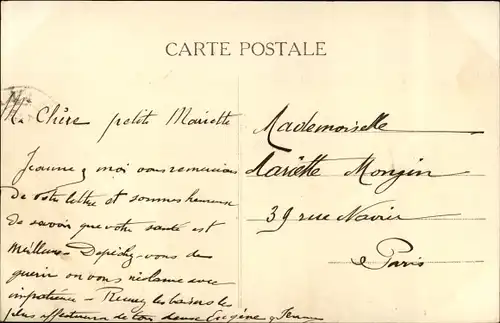 CARTE POSTALE
M. Chère petite Mariette
Jeanne & moi vous remercions
de votre lettre et sommes heureux
de savoir que votre santé est
meilleure - Dépêchez-vous de
guérir on vous réclame avec
impatience - Recevez les baisers les
plus affectueux de Eugène & Jeanne
Mademoiselle
Mariette Mongin
39 rue Navier
Paris